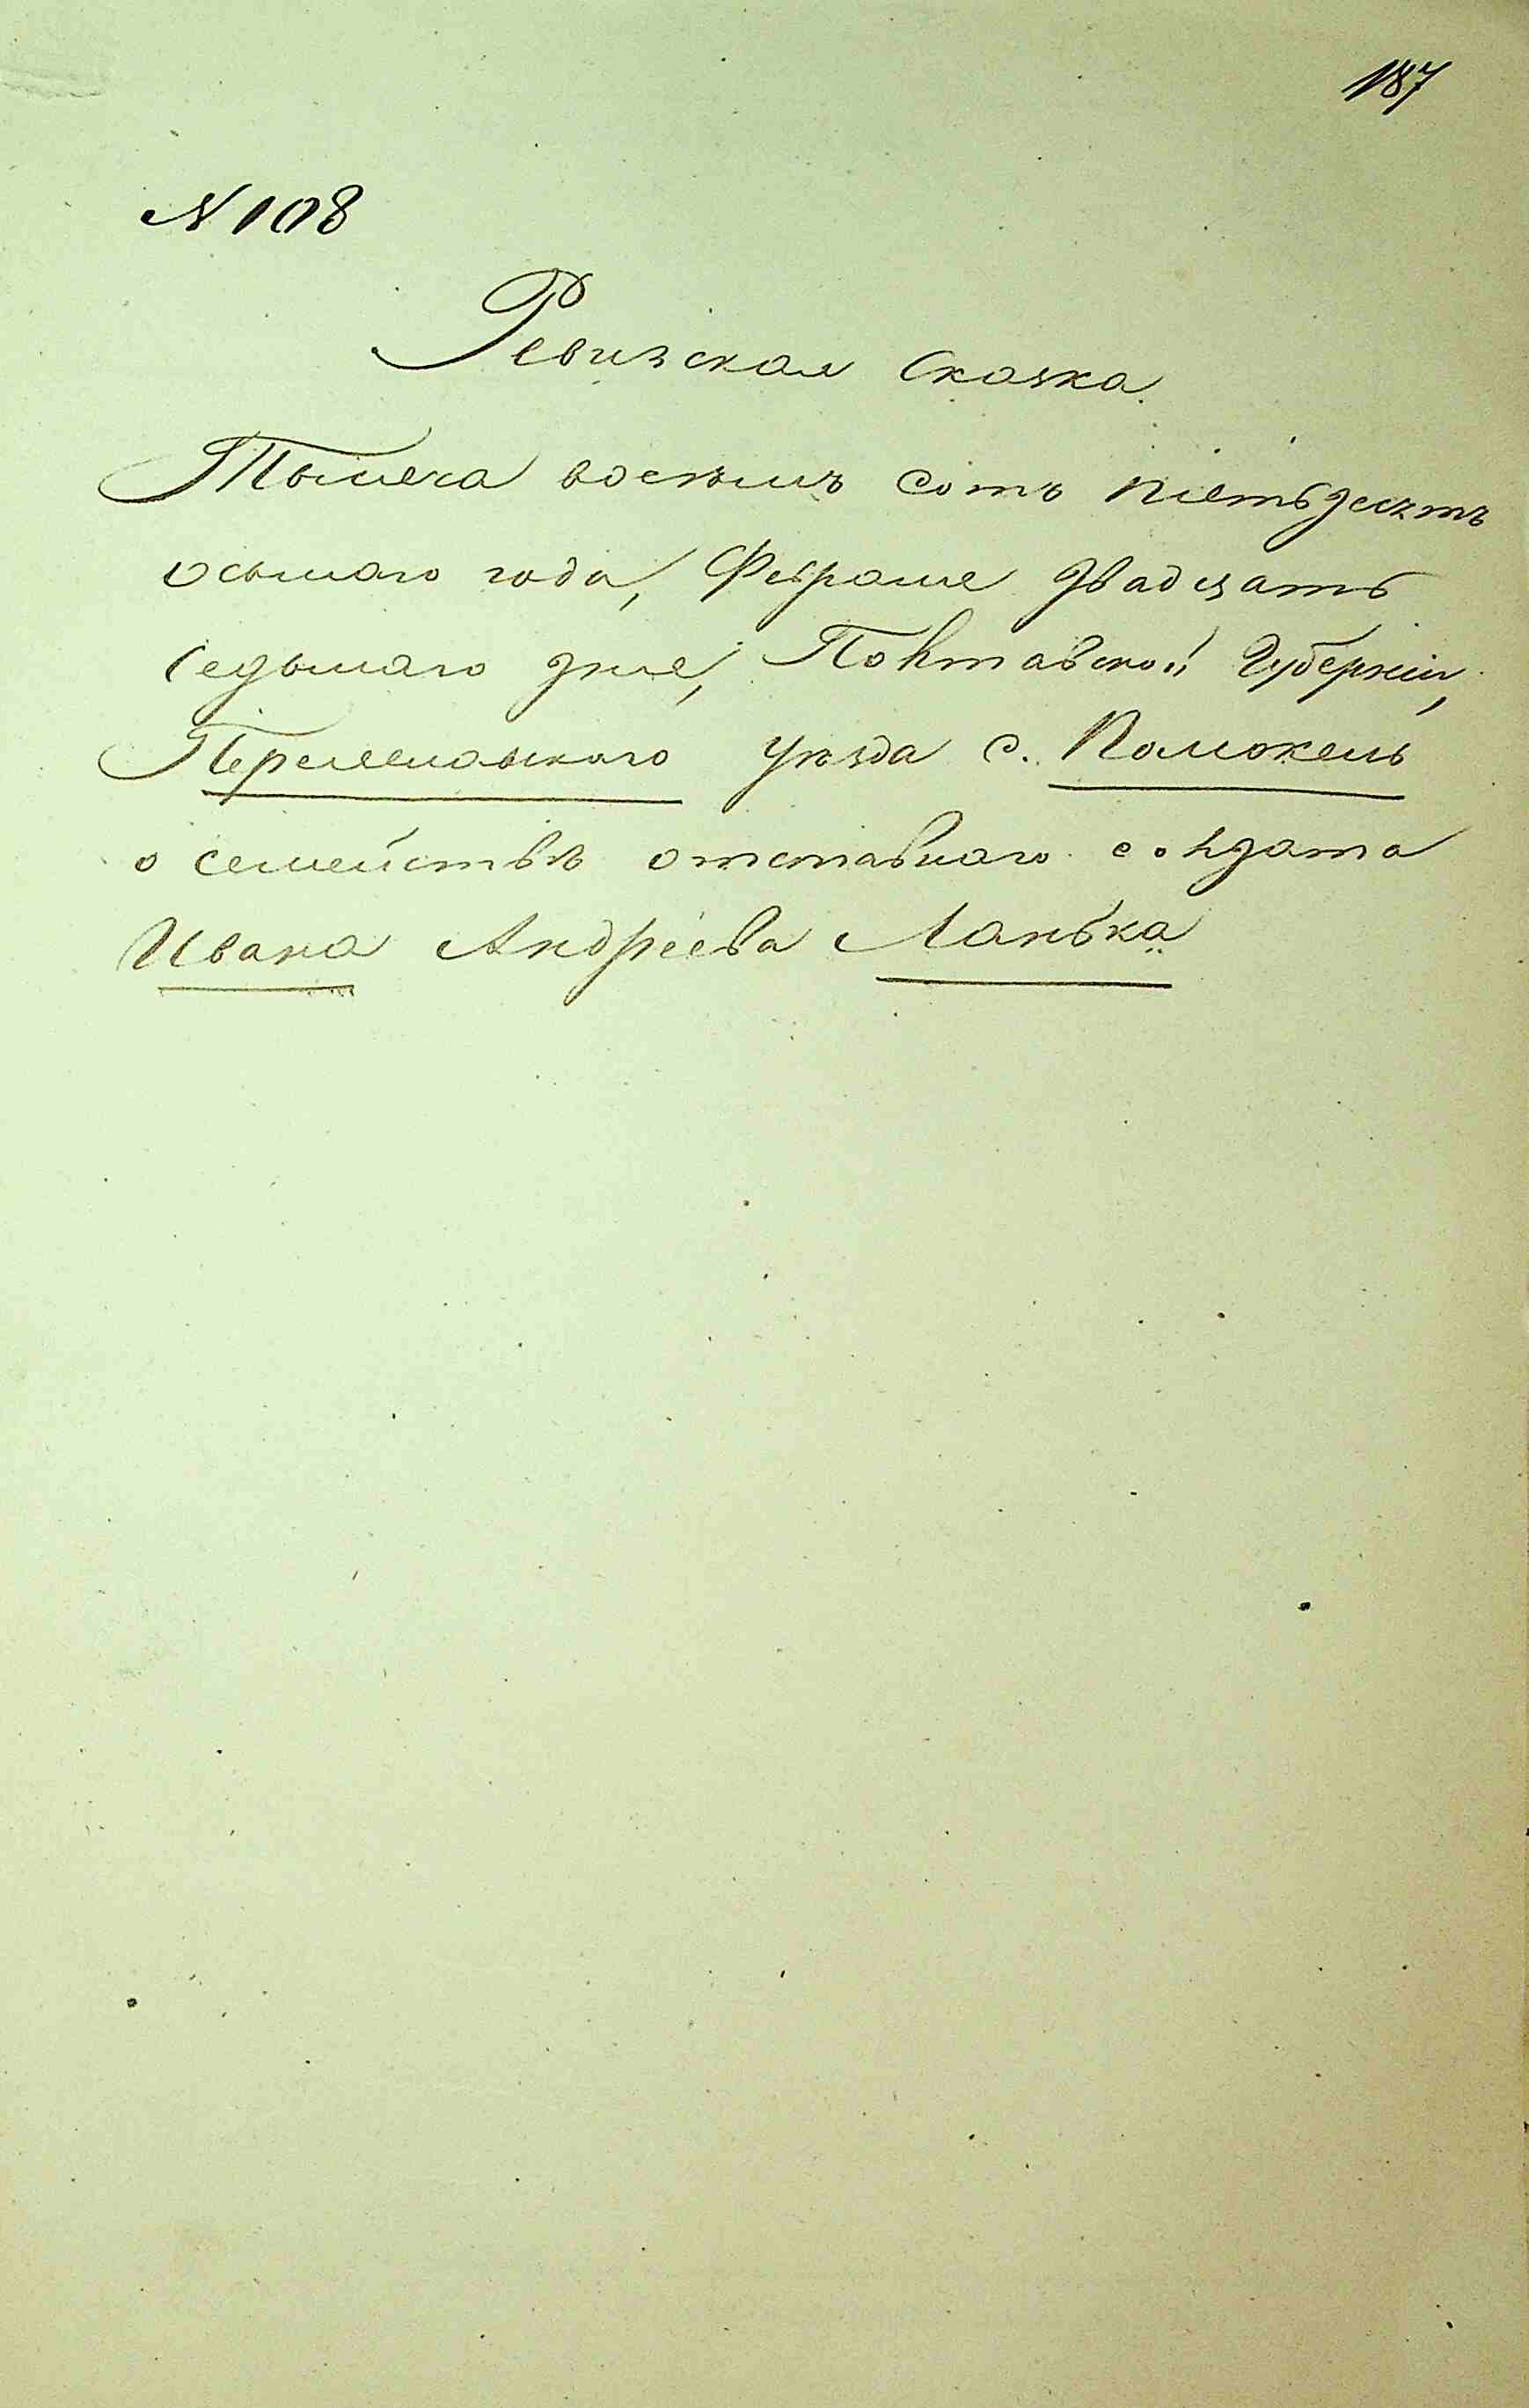 187
№ 108
Ревизская Сказка.
Тысяча восемь сотъ пятьдесятъ
осьмаго года, Февраля двадцать
седьмаго дня, Полтавской Губерніи,
Переяславскаго уѣзда с. Помоклень
о семействѣ отставнаго солдата
Ивана Андреева Ланька